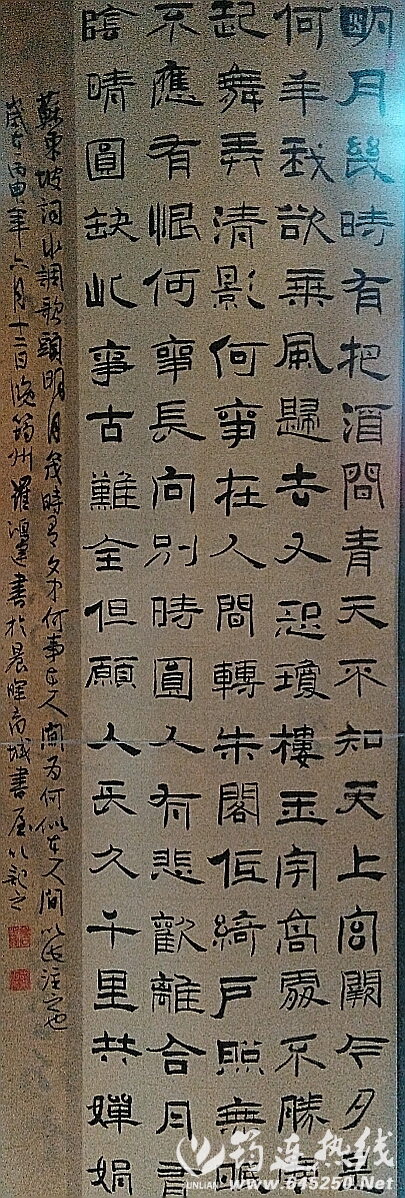 明月幾時有把酒問青天不知天上宮闕今夕是
何年我欲乘風歸去又恐瓊樓玉宇高處不勝寒
起舞弄清影何事在人間轉朱閣低綺戶照無眠
不應有恨何事長向別時圓人有悲歡離合月有
陰晴圓缺此事古難全但願人長久千里共嬋娟
蘇東坡詞水調歌頭明月幾時有文中何事在人間為何似在人間以注之也
歲在丙申年六月十二日筠州羅鴻書於晨暉商城書屋以記之
筠连热线
www.645250.Net